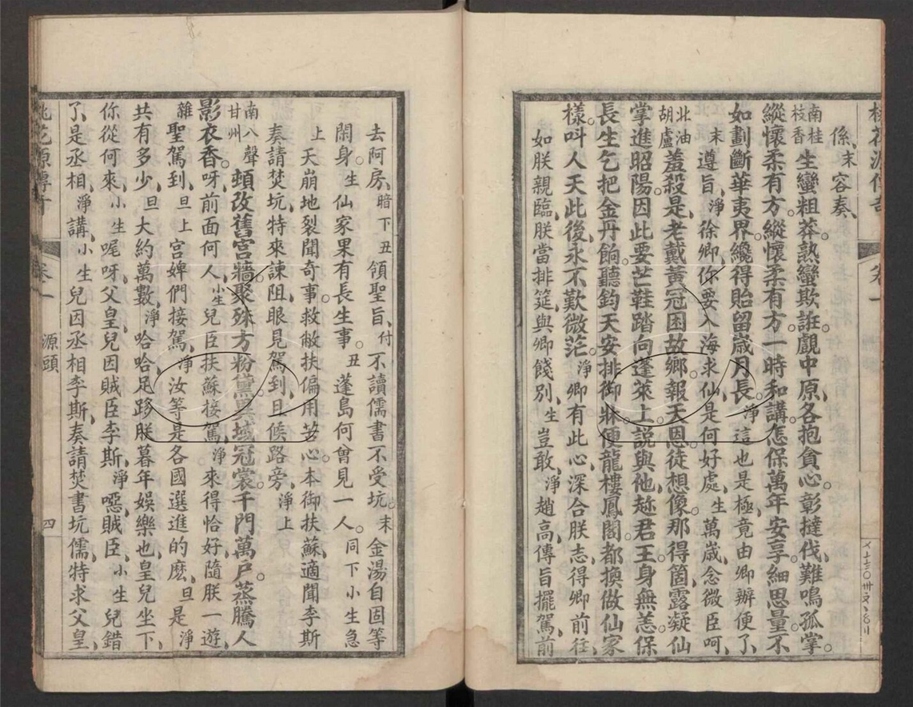 係末容奏
南桂枝香生蠻粗莽熟蠻欺誑觀中原各抱貪心彰撻伐難鳴孤掌
縱懷柔有方縱懷柔有方一時和講怎保萬年安享細思量不
如劃斷華夷界纔得貽留歲月長淨這也是極竟由卿辦便了
末遵旨淨徐卿你要入海求仙是何好處生萬歲念微臣呵
北油胡盧羞殺是老戴黃冠困故鄉報天恩徒想像那得箇露凝仙
掌進昭陽因此要芒鞋踏向蓬萊上説與他趂君王身無恙保
長生乞把金丹餉聽鈞天安排御牀便龍樓鳳閣都換做仙家
樣叫人天此後永不歎微茫淨卿有此心深合朕志得卿前往
如朕親臨朕當排筵與卿餞別生豈敢淨趙高傳旨擺駕前
去阿房暗下丑領聖旨付不讀儒書不受坑末金湯自固等
閙身生仙家果有長生事丑蓬島何曾見一人同下小生急
上天崩地裂聞奇事救敝扶偏用苦心本御扶蘇適聞李斯
奏請焚坑特來諫阻眼見駕到且候路旁淨上
南八聲甘州頓改舊宮牆聚殊方粉黛異域冠裳千門萬戶蒸騰人
影衣香呀前面何人小生兒臣扶蘇接駕淨來得恰好隨朕一遊
雜聖駕到旦上宮婢們接駕淨汝等是各國選進的麽旦是淨
共有多少旦大約萬數淨哈哈足勾朕暮年娛樂也皇兒坐下
你從何來小生喔呀父皇兒因賊臣李斯淨噁賊臣小生兒錯
了是丞相淨講小生兒因丞相李斯奏請焚書坑儒特求父皇
卷一
源頭
四